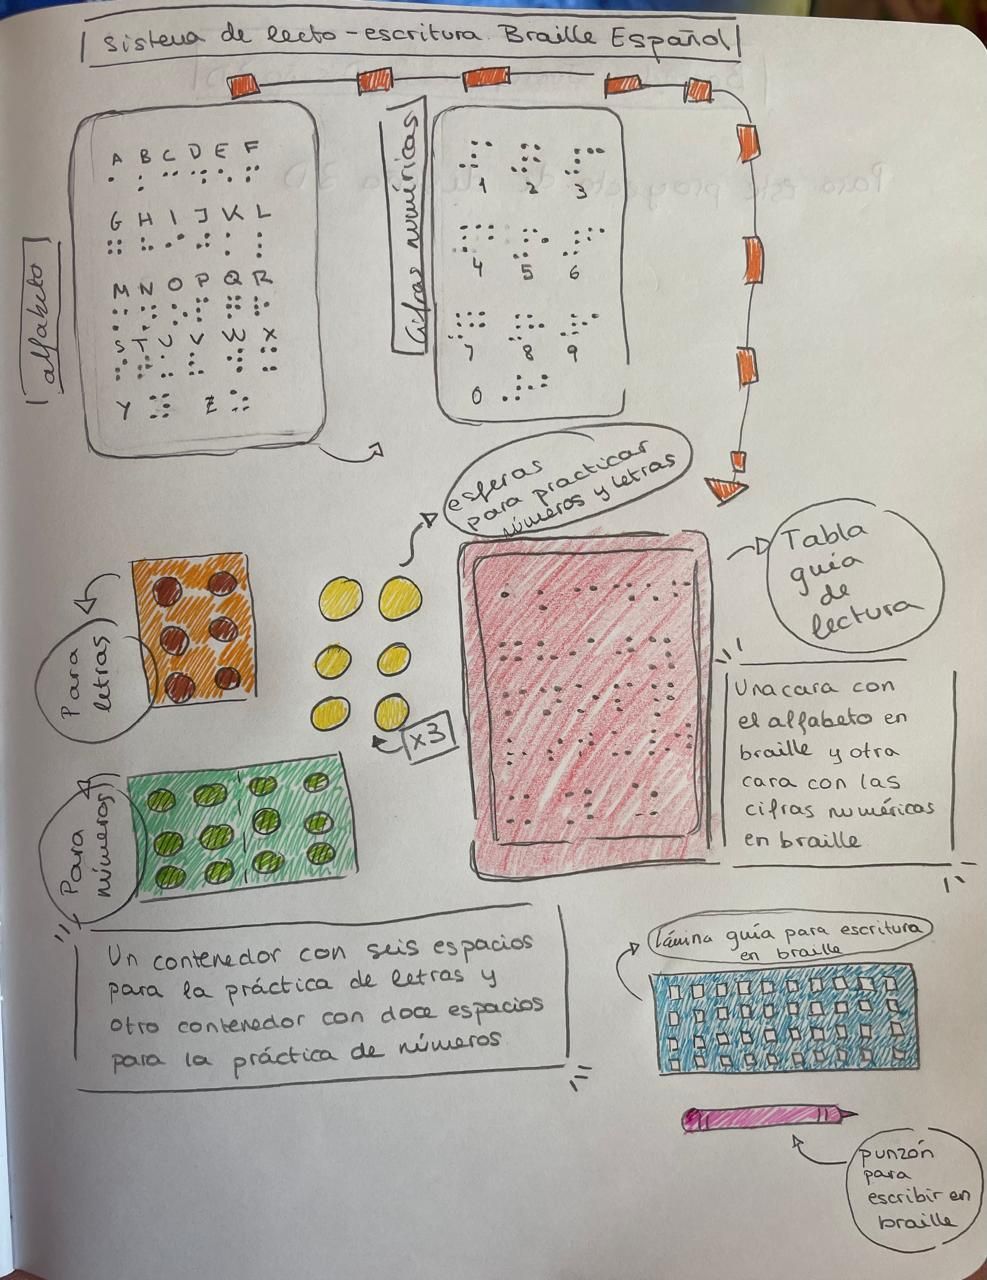 Sistema de lecto-escritura Braille Español
alfabeto
A B C D E F
G H I J K L
M N O P Q R
S T U V W X
Y Z
Cifras numéricas
1 2 3
4 5 6
7 8 9
0
esferas
para practicar
números y letras
Tabla
guía
de
lectura
Para
letras
x3
Una cara con
el alfabeto en
braille y otra
cara con las
cifras numéricas
en braille
Para
números
Un contenedor con seis espacios
para la práctica de letras y
otro contenedor con doce espacios
para la práctica de números
lámina guía para escritura
en braille
punzón
para
escribir en
braille